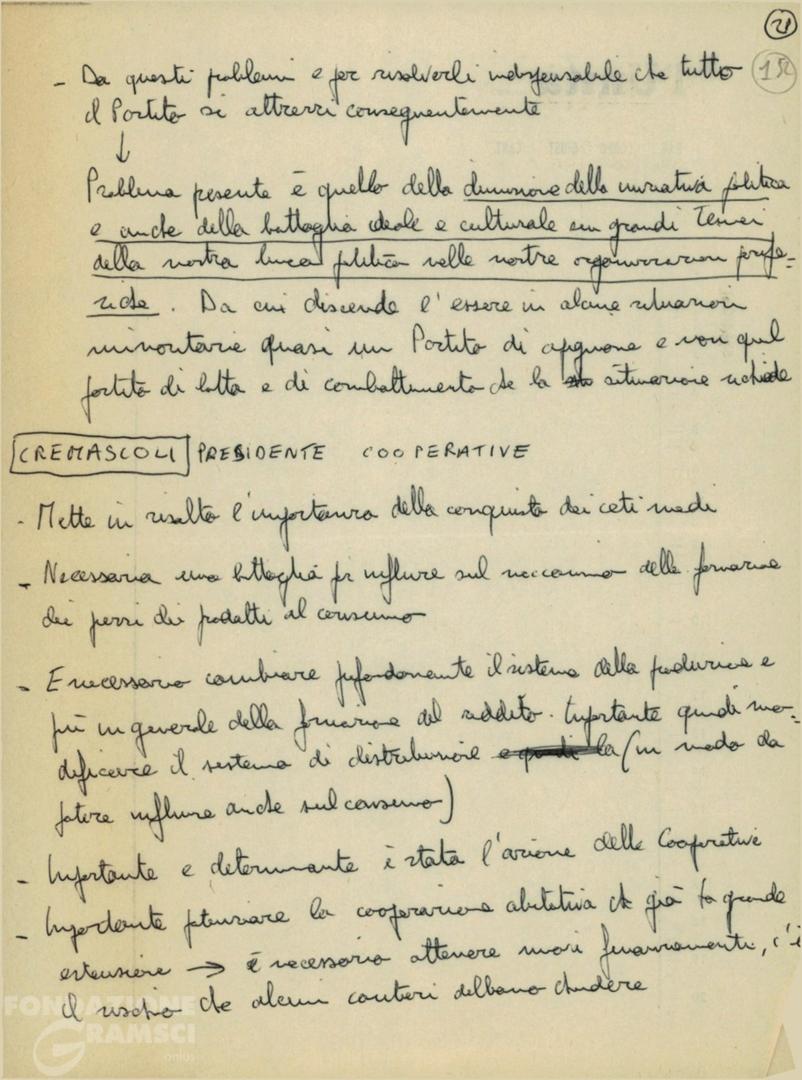 21
152
- Da questi problemi e per risolverli indispensabile che tutto
il Partito si attrezzi conseguentemente
↓
Problema pesente è quello della dimensione della iniziativa politica
e anche della battaglia ideale e culturale sui grandi temi
della nostra linea politica nelle nostre organizzazioni perife=
riche. Da cui discende l'essere in alcune situazioni
minoritarie quasi un Partito di opinione e non quel
partito di lotta e di combattimento che la situazione richiede
CREMASCOLI PRESIDENTE COOPERATIVE
- Mette in risalto l'importanza della conquista dei ceti medi
- Necessaria una battaglia per influire sul meccanismo della formazione
dei prezzi dei prodotti al consumo
- E necessario cambiare profondamente il sistema della produzione e
più in generale della formazione del reddito. Importante quindi mo-
dificare il sistema di distribuzione e quindi la (in modo da
potere influire anche sul consumo)
- Importante e determinante è stata l'azione delle Cooperative
- Importante potenziare la cooperazione abitativa che già ha grande
estensione → è necessario ottenere nuovi finanziamenti, c'è
il rischio che alcuni cantieri debbano chiudere
FONDAZIONE
GRAMSCI
onlus